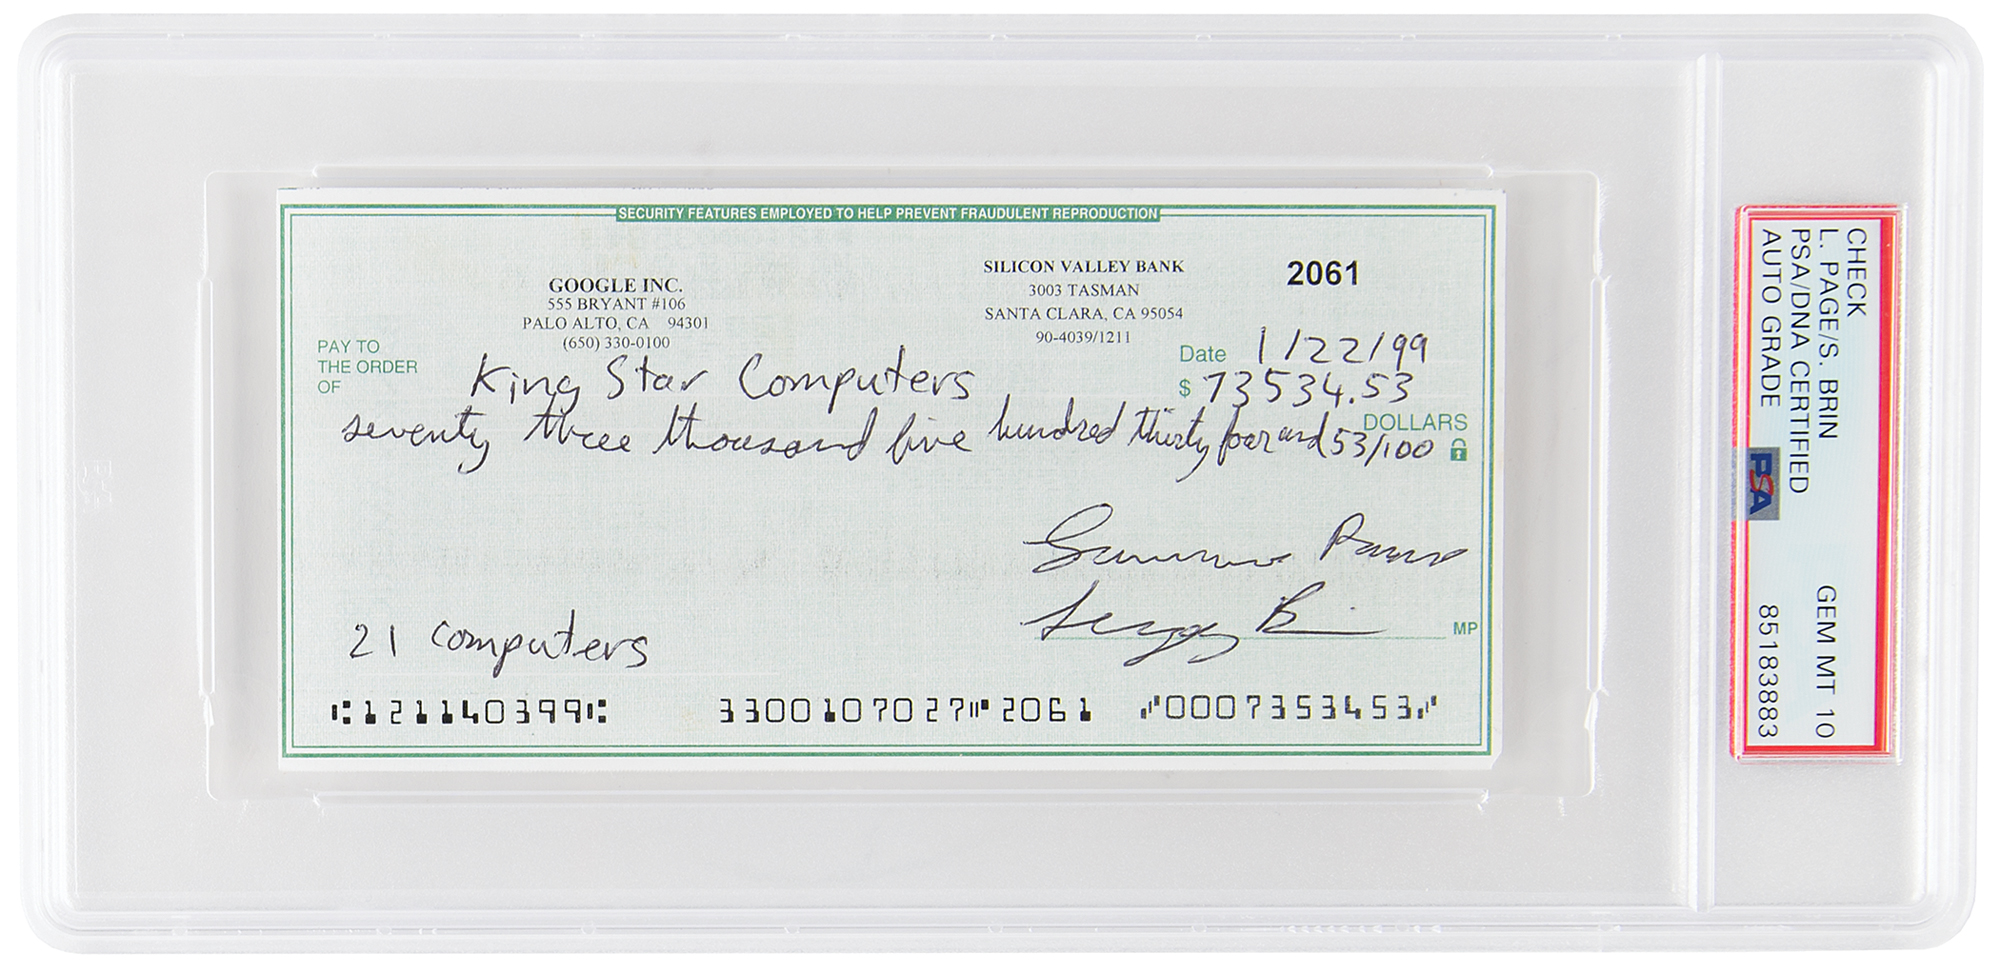 SECURITY FEATURES EMPLOYED TO HELP PREVENT FRAUDULENT REPRODUCTION
GOOGLE INC.
555 BRYANT #106
PALO ALTO, CA 94301
(650) 330-0100
SILICON VALLEY BANK
3003 TASMAN
SANTA CLARA, CA 95054
90-4039/1211
2061
Date 1/22/99
PAY TO
THE ORDER
OF
King Star Computers
$ 73534.53
seventy three thousand five hundred thirty four and 53/100
DOLLARS
Lawrence Page
Sergey Brin
MP
21 computers
⑆121140399⑆ 3300107027⑈2061 ⑇0007353453⑇
CHECK
L. PAGE/S. BRIN
PSA/DNA CERTIFIED
AUTO GRADE
GEM MT 10
85183883
PSA